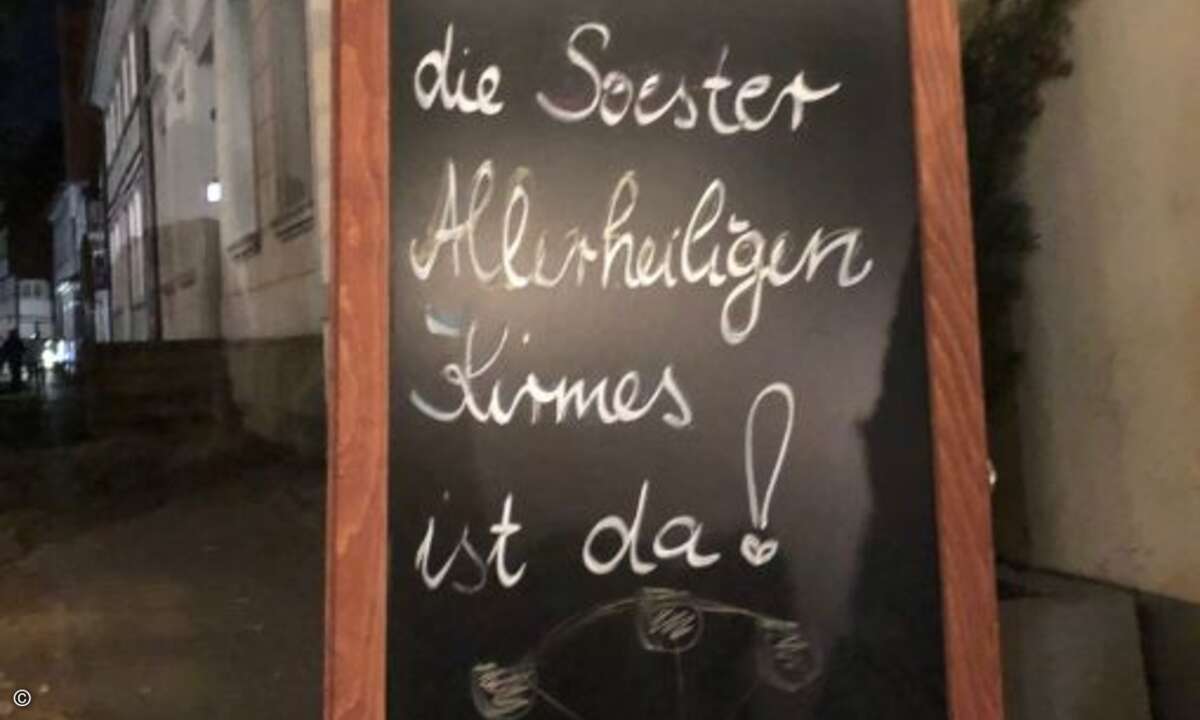 die Soester
Allerheiligen
Kirmes
ist da!
©